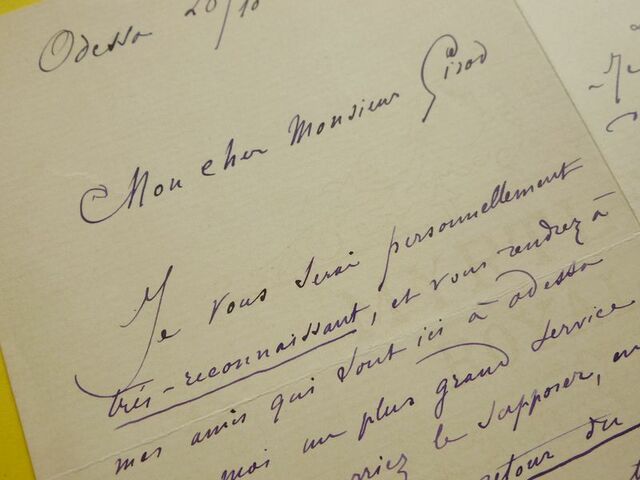 Odessa 20/10
Mon cher Monsieur Girod
Je vous serai personnellement
très-reconnaissant, et vous rendrez à
mes amis qui sont ici à Odessa
moi un plus grand service
le supposer, en
retour du